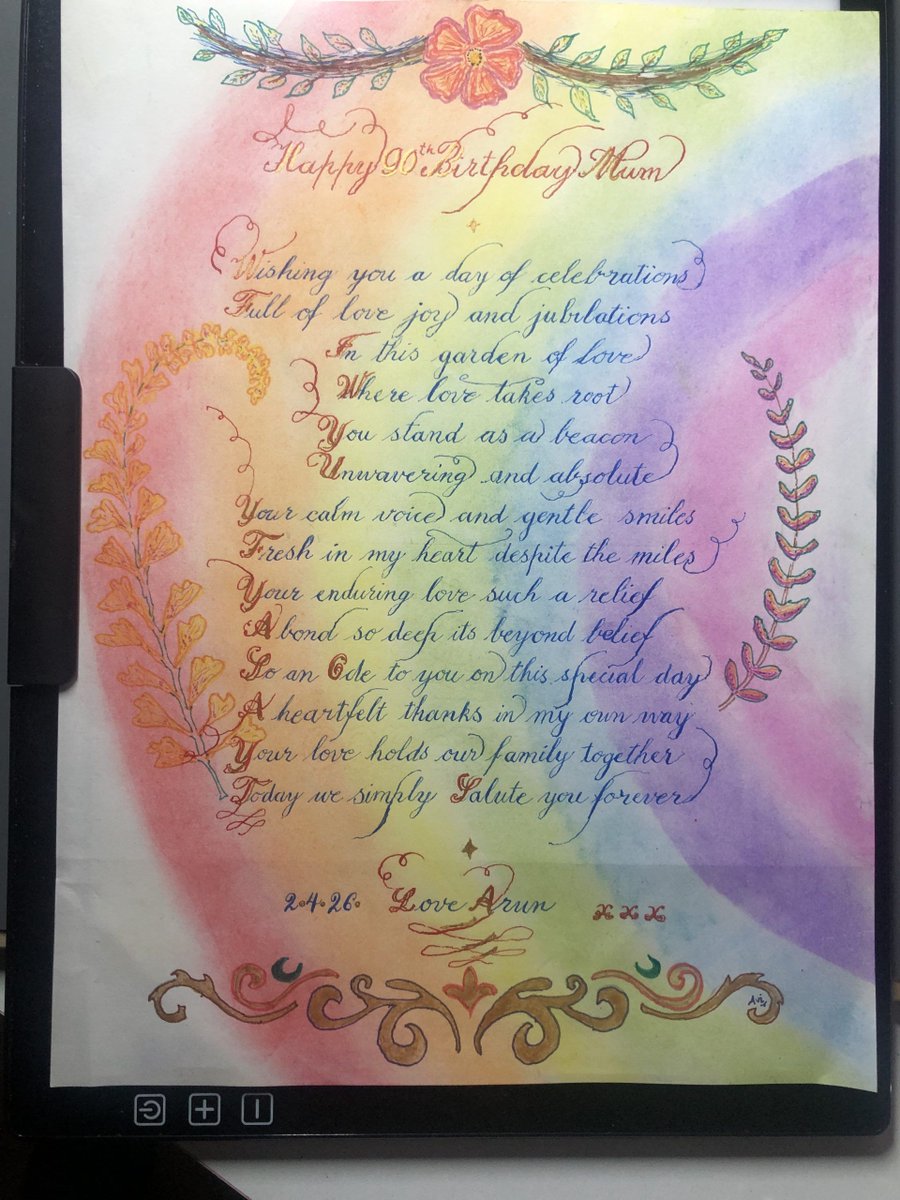 Happy 90th Birthday Mum
Wishing you a day of celebrations
Full of love joy and jubilations
In this garden of love
Where love takes root
You stand as a beacon
Unwavering and absolute
Your calm voice and gentle smiles
Fresh in my heart despite the miles
Your enduring love such a relief
A bond so deep its beyond belief
So an Ode to you on this special day
A heartfelt thanks in my own way
Your love holds our family together
Today we simply Salute you forever
2.4.26. Love Arun x x x